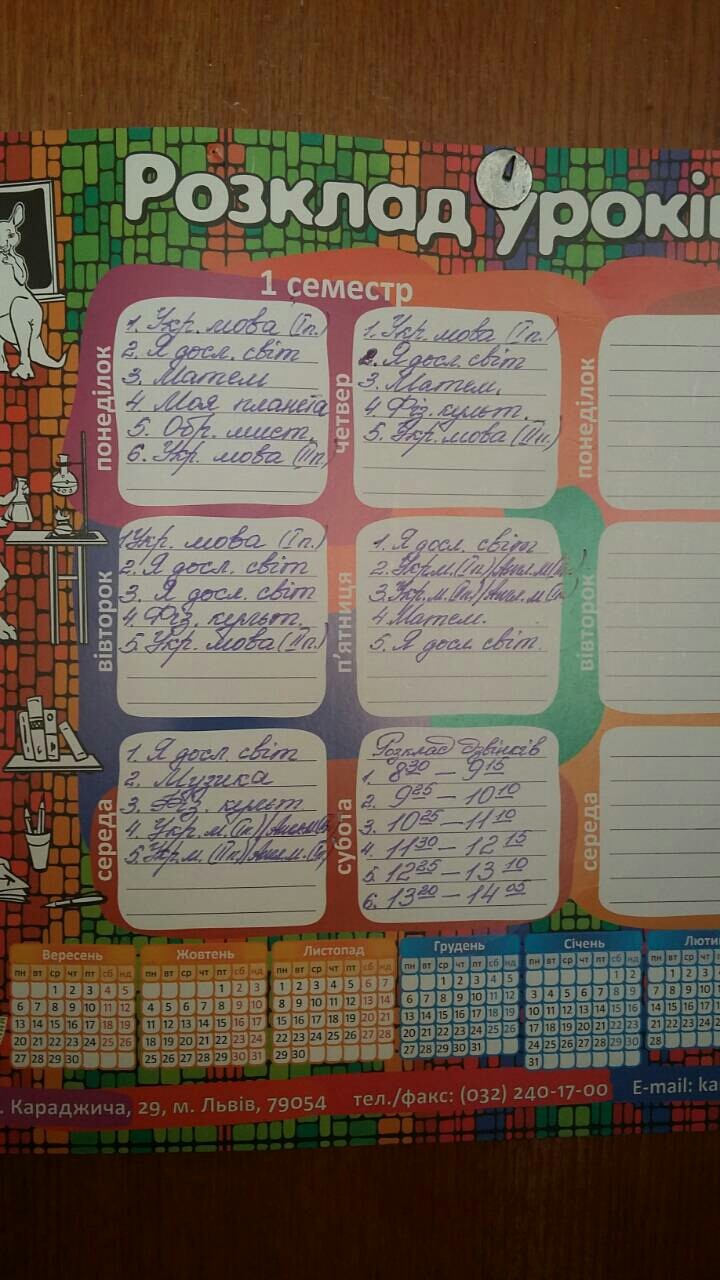 Розклад уроків
1 семестр
понеділок
1. Укр. мова (Іп.)
2. Я досл. світ
3. Матем
4. Моя планета
5. Обр. мист.
6. Укр. мова (ІІп.)
вівторок
1 Укр. мова (Іп.)
2. Я досл. світ
3. Я досл. світ
4. Фіз. культ.
5. Укр. мова (ІІп.)
середа
1. Я досл. світ
2. Музика
3. Фіз. культ
4. Укр. м.
5. Укр. м (ІІп.)
четвер
1. Укр. мова (Іп.)
2. Я досл. світ
3. Матем.
4. Фіз. культ.
5. Укр. мова (ІІп.)
п'ятниця
1. Я досл. світ
2. Укр. м. (Іп.)
3. Укр. м.
4 Матем.
5. Я досл. світ.
субота
Розклад дзвінків
1. 8 30 – 9 15
2. 9 25 – 10 10
3. 10 25 – 11 10
4. 11 30 – 12 15
5. 12 25 – 13 10
6. 13 20 – 14 05
понеділок
вівторок
середа
Вересень
пн вт ср чт пт сб нд
1 2 3 4 5
6 7 8 9 10 11 12
13 14 15 16 17 18 19
20 21 22 23 24 25 26
27 28 29 30
Жовтень
пн вт ср чт пт сб нд
1 2 3
4 5 6 7 8 9 10
11 12 13 14 15 16 17
18 19 20 21 22 23 24
25 26 27 28 29 30 31
Листопад
пн вт ср чт пт сб нд
1 2 3 4 5 6 7
8 9 10 11 12 13 14
15 16 17 18 19 20 21
22 23 24 25 26 27 28
29 30
Грудень
пн вт ср чт пт сб нд
1 2 3 4 5
6 7 8 9 10 11 12
13 14 15 16 17 18 19
20 21 22 23 24 25 26
27 28 29 30 31
Січень
пн вт ср чт пт сб нд
1 2
3 4 5 6 7 8 9
10 11 12 13 14 15 16
17 18 19 20 21 22 23
24 25 26 27 28 29 30
31
Люти
пн вт ср чт
1 2 3
7 8 9 10
14 15 16 17
21 22 23 24
28
. Караджича, 29, м. Львів, 79054 тел./факс: (032) 240-17-00 E-mail: ka